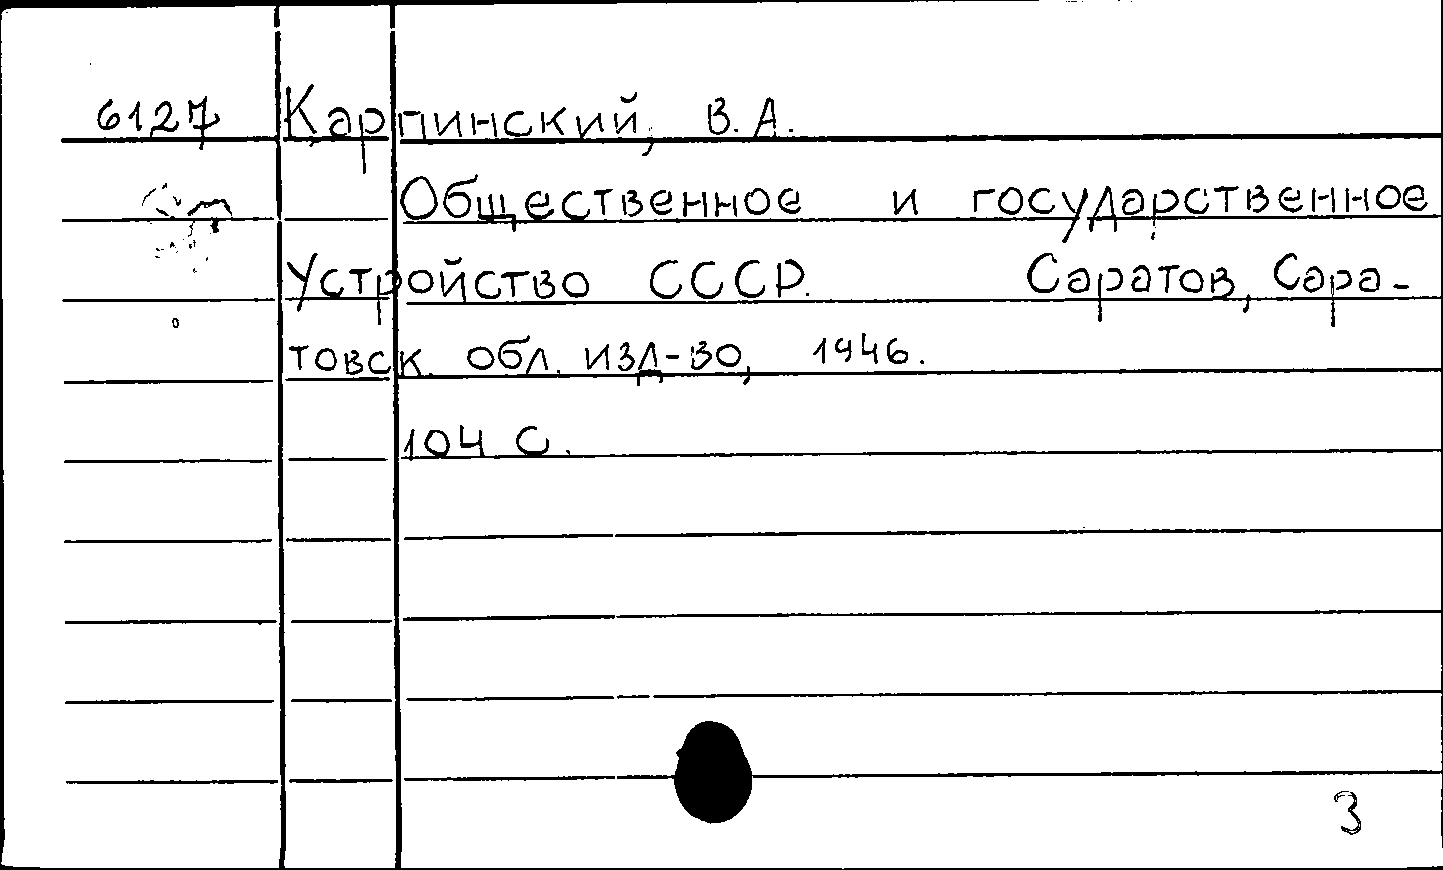 6127 Карпинский, В.А.
Общественное и государственное
устройство СССР. Саратов, Сара-
товск. обл. изд-во, 1946.
104 с.
3